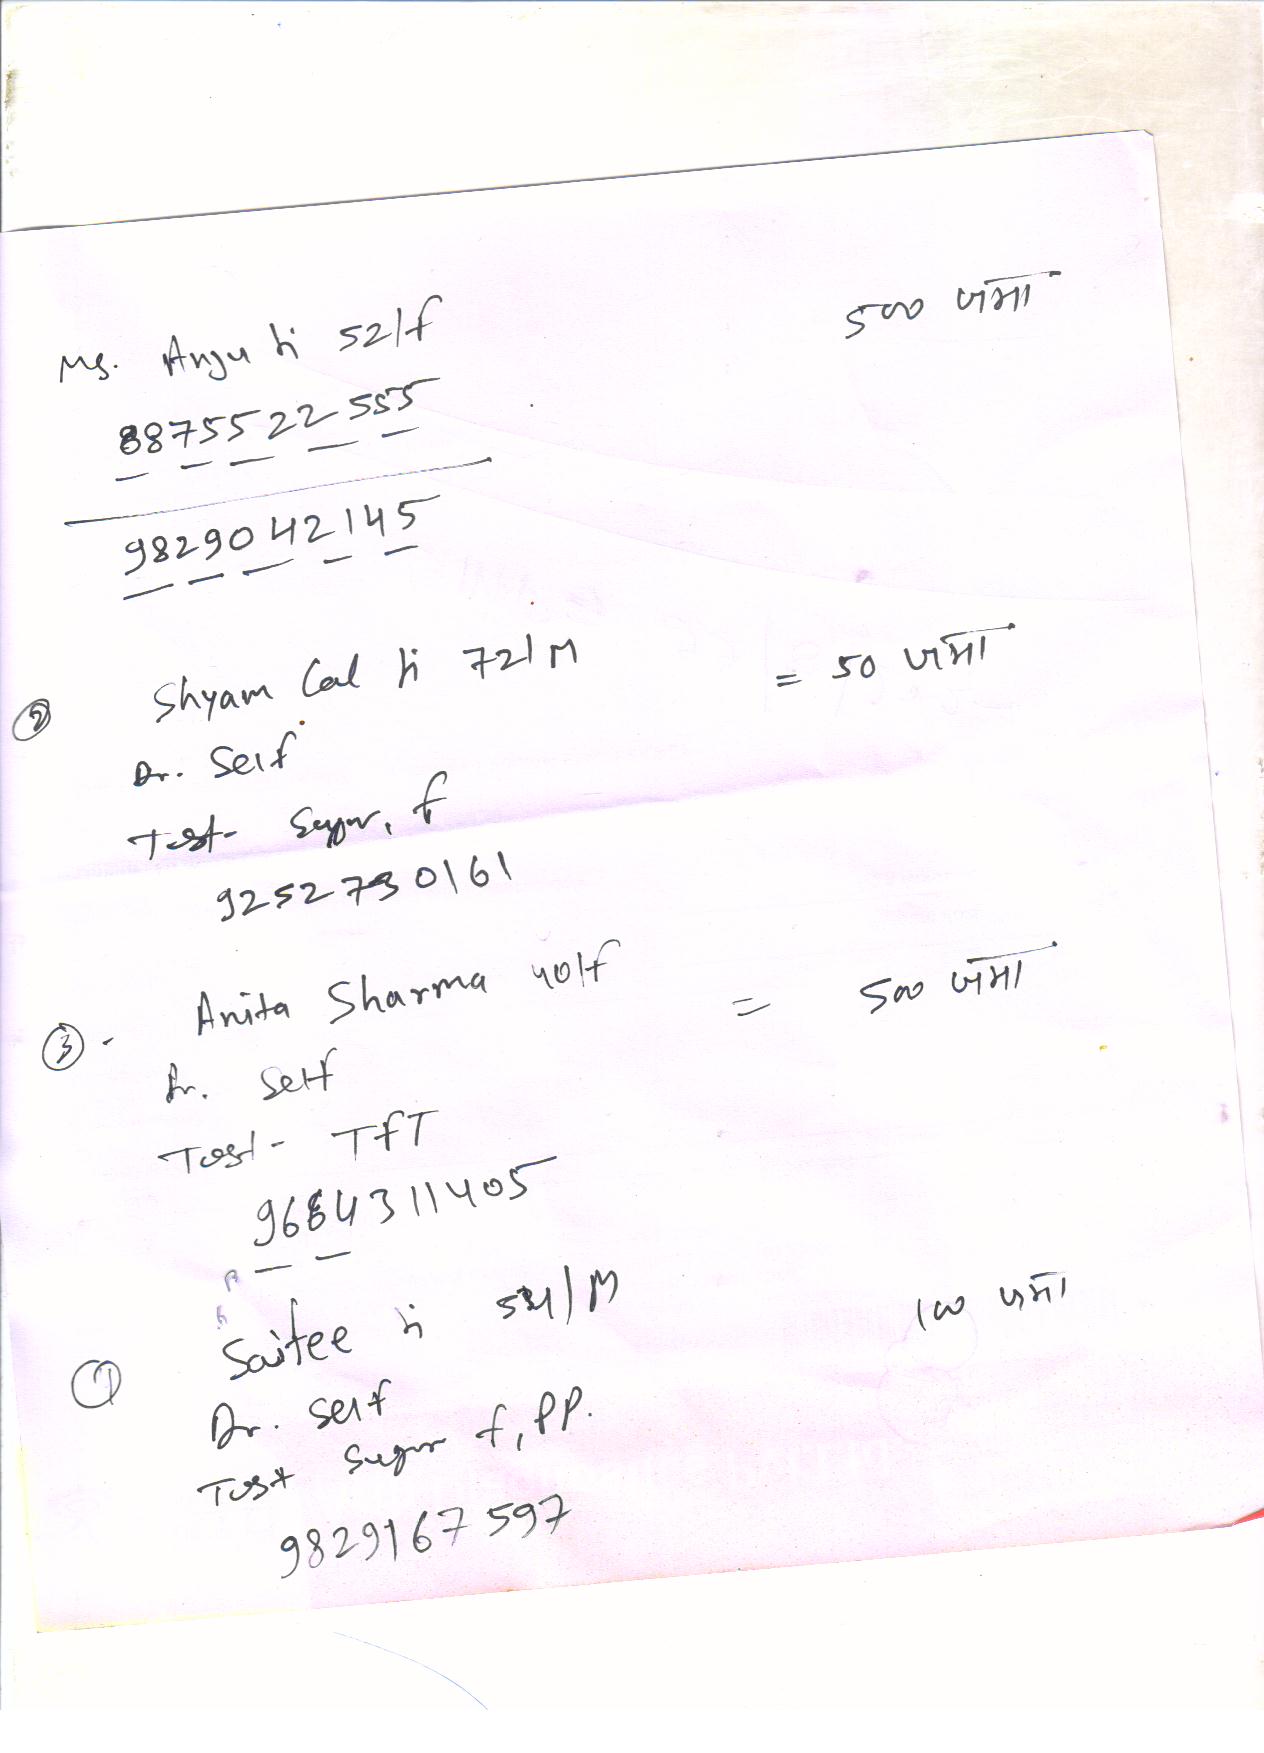 Ms. Anju ji 52/f 500 जमा
8875522555
9829042145
② Shyam Lal ji 72/M = 50 जमा
Dr. Self
Test- Sugar, f
9252730161
③ - Anita Sharma 40/f = 500 जमा
Dr. Self
Test- TfT
9684311405
Saifee ji /M 100 जमा
Dr. Self
Test Sugar f, PP.
9829167597